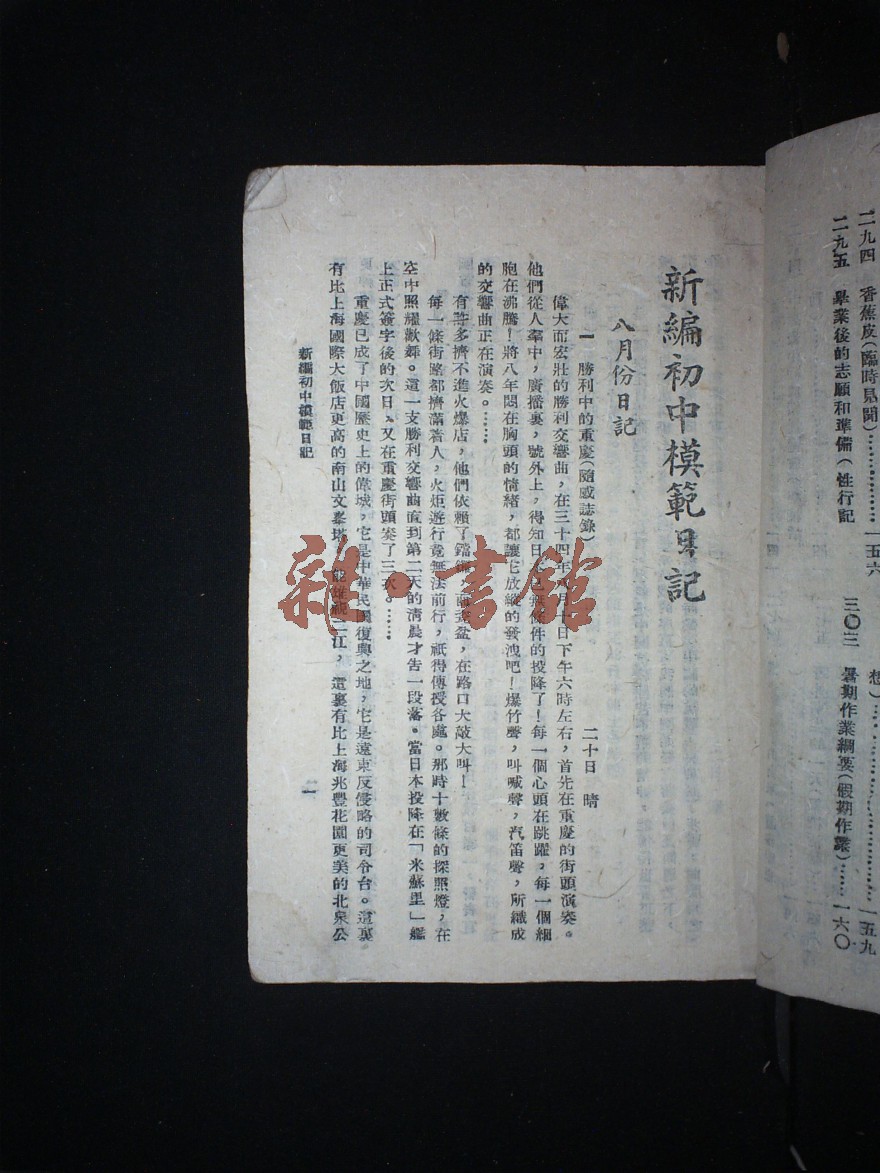 二九四　香蕉皮(臨時見聞)…………………一五六
二九五　畢業後的志願和準備(性行記
想)…………………一五九
三〇三　暑期作業綱要(假期作業)……一六〇
新編初中模範日記
八月份日記
一　勝利中的重慶(隨感誌錄)　二十日　晴
偉大而宏壯的勝利交響曲,在三十四年八月十日下午六時左右,首先在重慶的街頭演奏。
他們從人羣中,廣播裏,號外上,得知日本已無條件的投降了!每一個心頭在跳躍,每一個細
胞在沸騰!將八年悶在胸頭的情緒,都讓它放縱的發洩吧!爆竹聲,叫喊聲,汽笛聲,所織成
的交響曲正在演奏。……
有許多擠不進火爆店,他們依賴了鑼鼓,面盆,在路口大敲大叫!
每一條街路都擠滿着人,火炬遊行竟無法前行,祇得傳授各處。那時十數條的探照燈,在
空中照耀歡舞。這一支勝利交響曲直到第二天的清晨才告一段落。當日本投降在「米蘇里」艦
上正式簽字後的次日,又在重慶街頭奏了三次。……
重慶已成了中國歷史上的偉城,它是中華民國復興之地,它是遠東反侵略的司令台。這裏
有比上海國際大飯店更高的南山文峯塔,能雄視二江,這裏有比上海兆豐花園更美的北泉公
新編初中模範日記
一
雜·書館